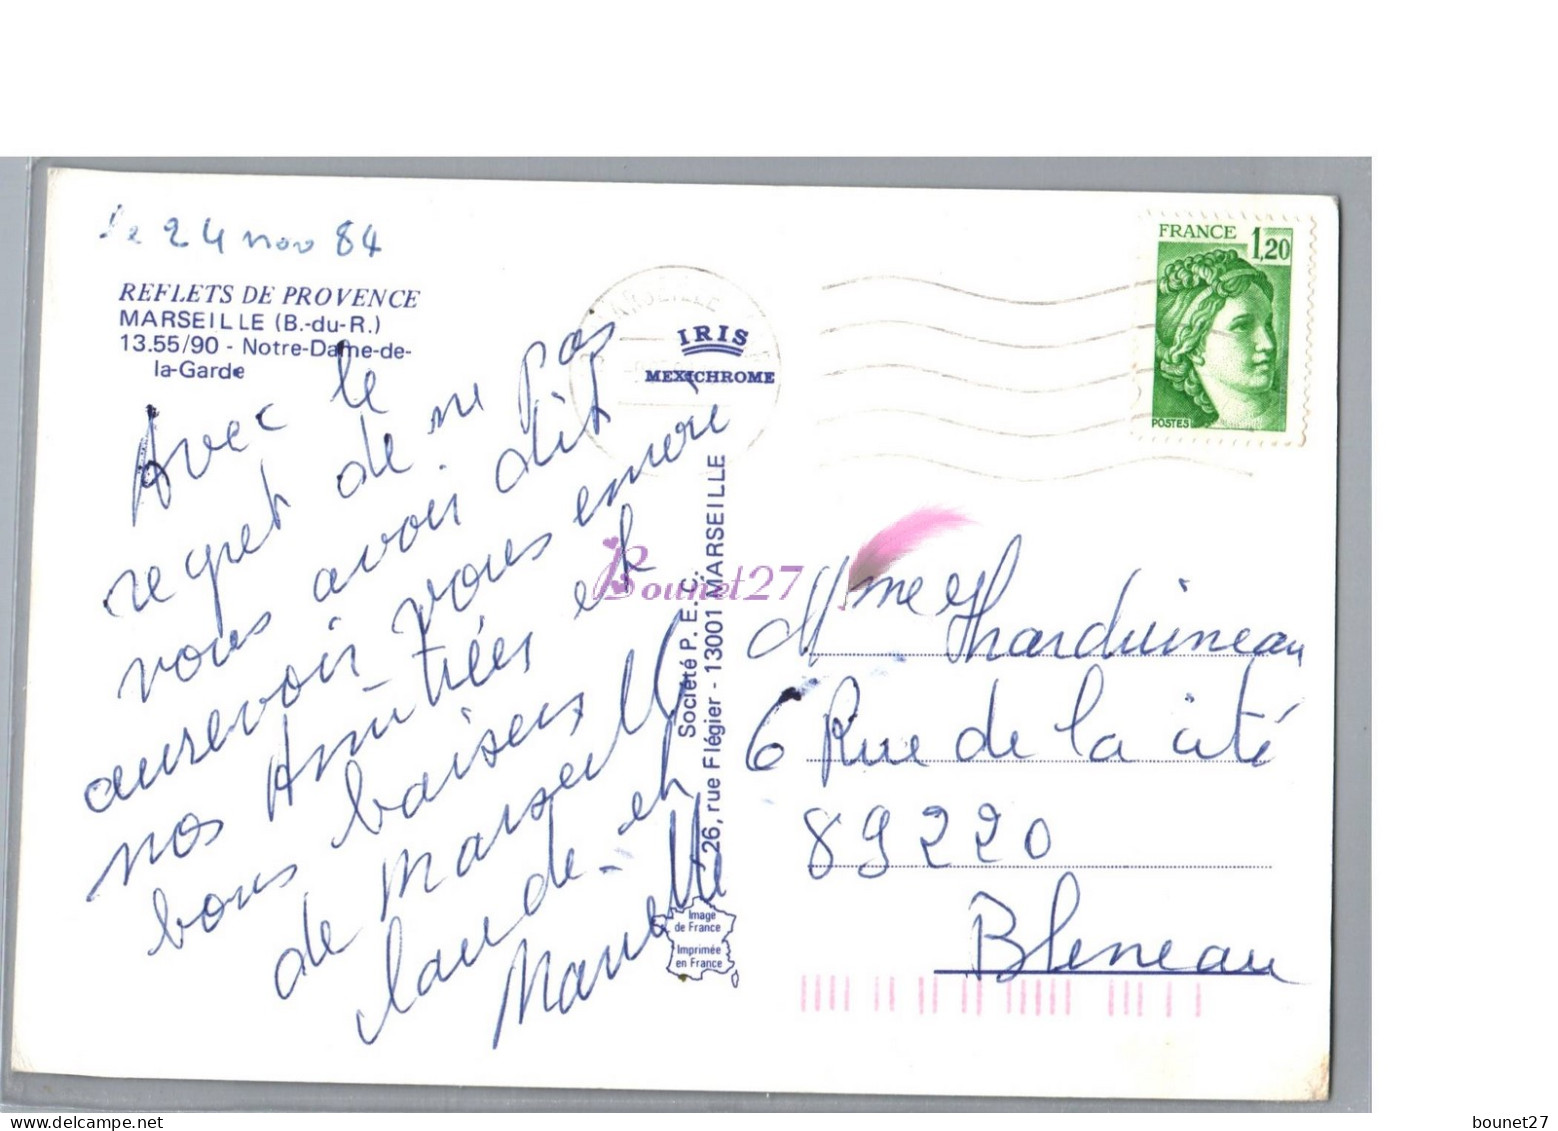 le 24 nov 84
REFLETS DE PROVENCE
MARSEILLE (B.-du-R.)
13.55/90 - Notre-Dame-de-
la-Garde
Avec le
regret de ne pas
vous avoir dit
aurevoir vous envoie
nos Amitiées et
bons baisers
de Marseille
Claude et
FRANCE 1,20
POSTES
MARSEILLE
IRIS
MEXICHROME
Société P. E. C.
26, rue Flégier - 13001 MARSEILLE
Bounet27
Image
de France
Imprimée
en France
Mme
6 Rue de la cité
89220
Bleneau
bounet27